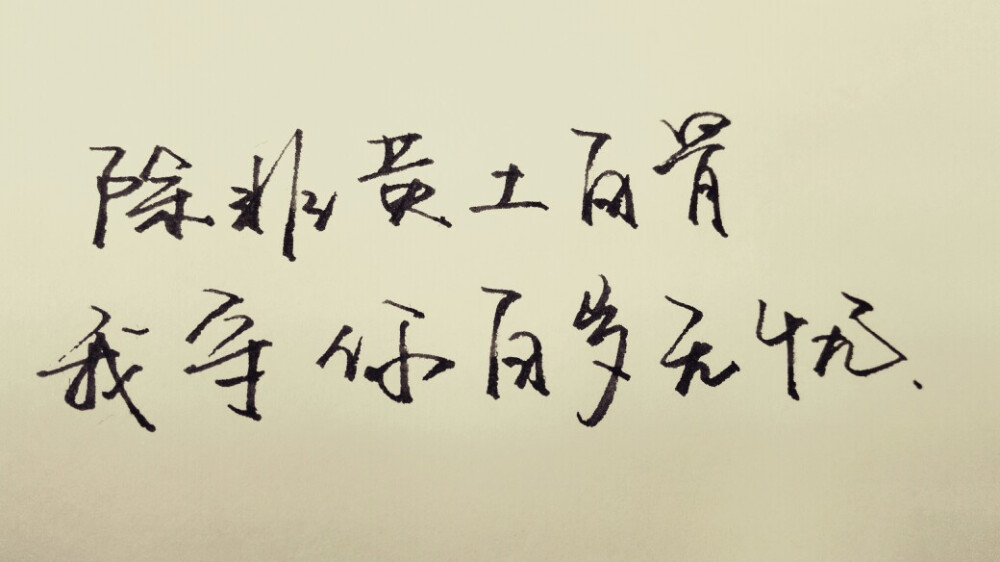 除非黄土百骨
我守你百岁无忧.